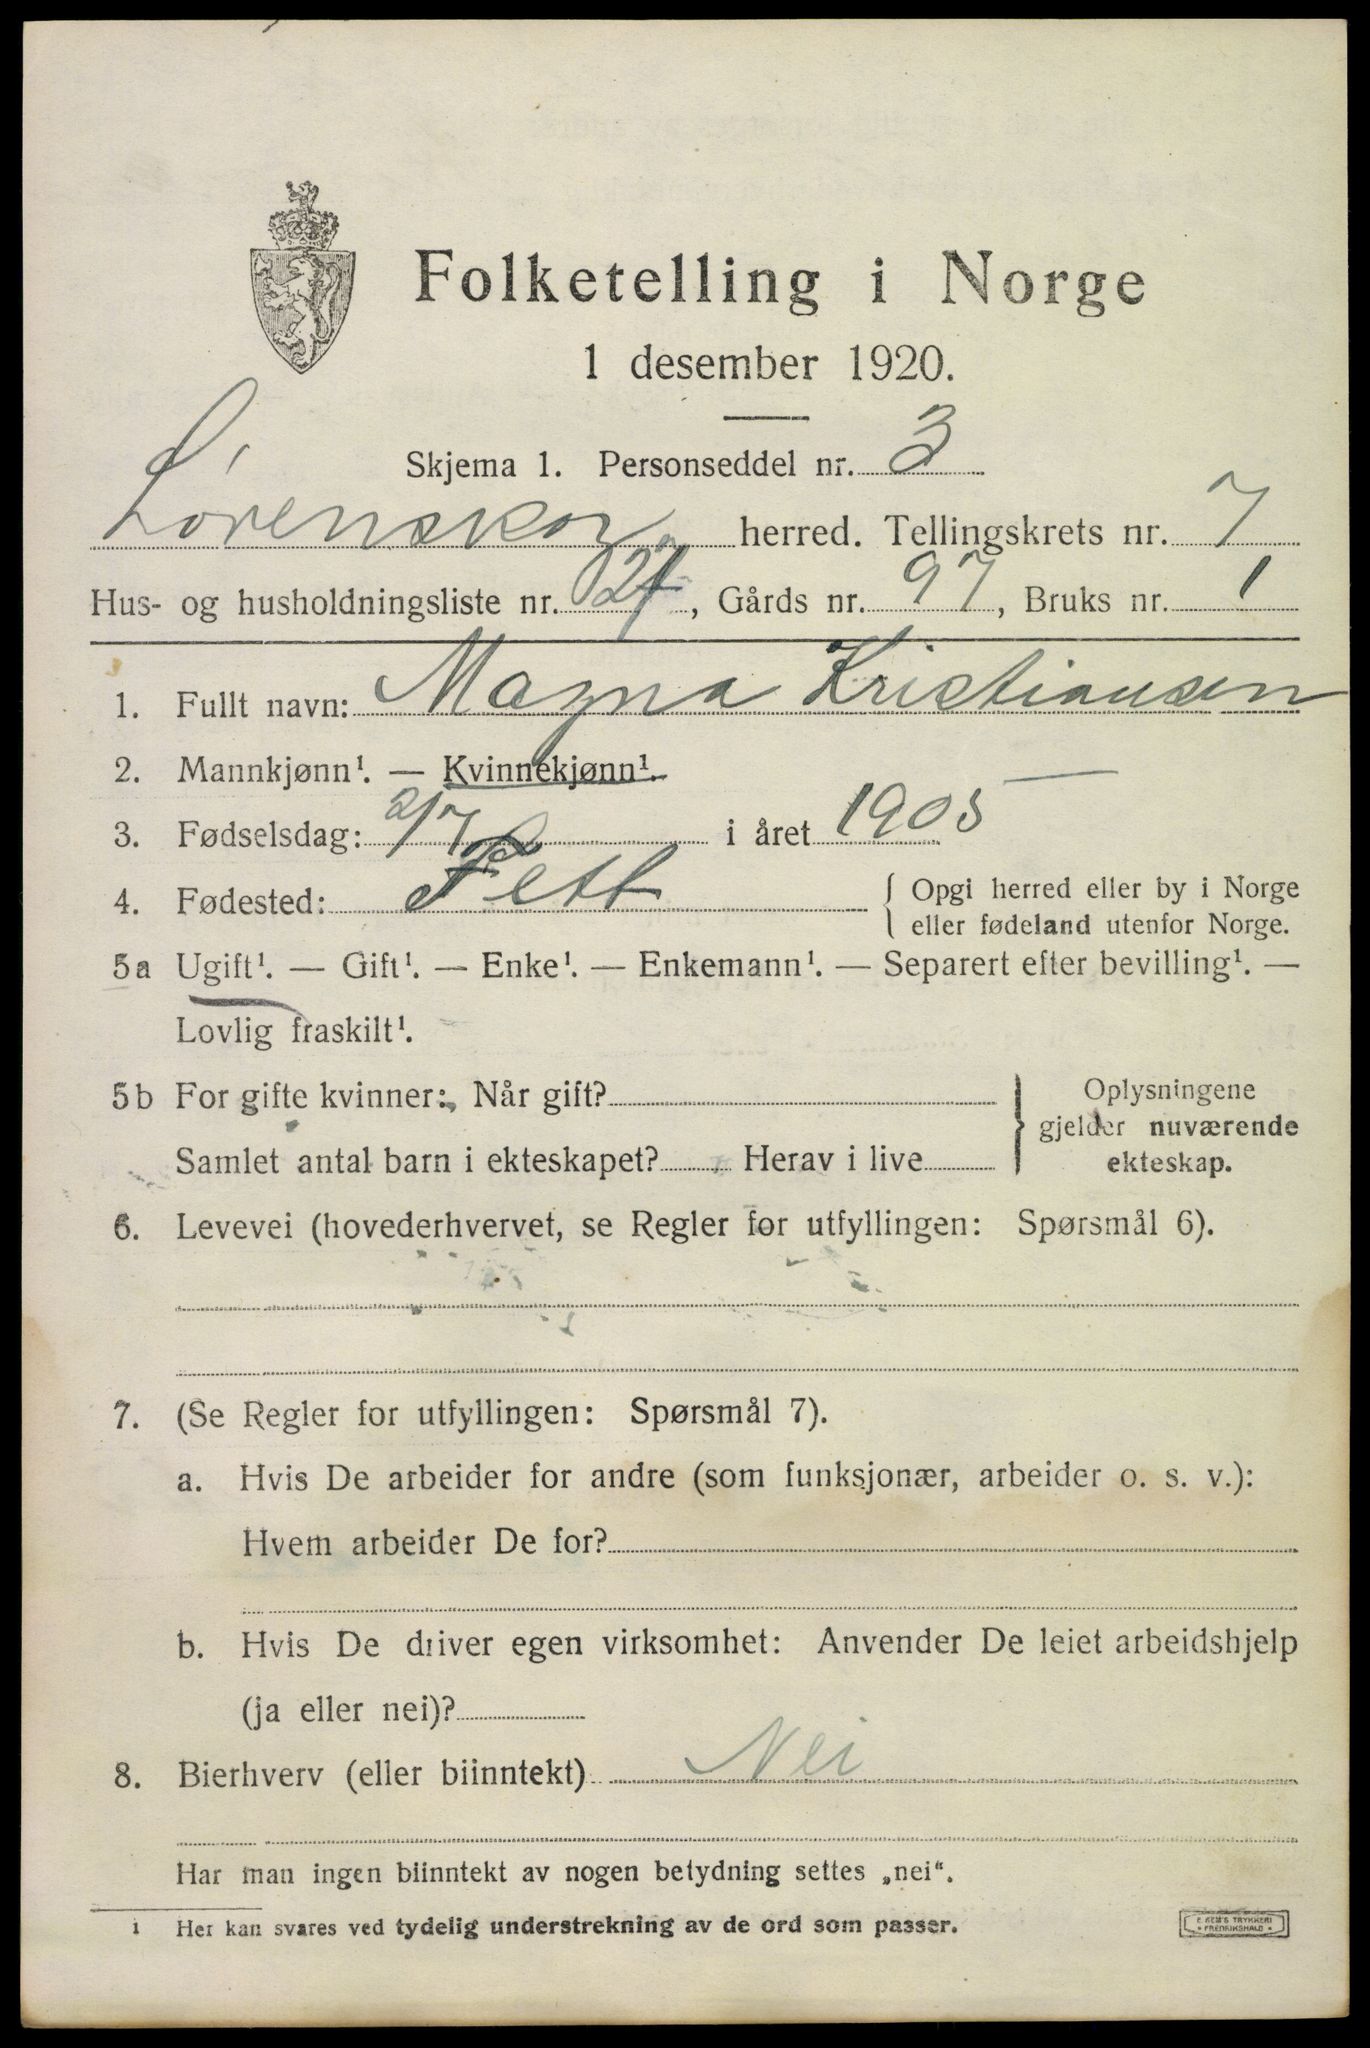 Folketelling i Norge
1 desember 1920.
Skjema 1. Personseddel nr. 3
Lørenskog herred. Tellingskrets nr. 7
Hus- og husholdningsliste nr. 27, Gårds nr. 97, Bruks nr. 1
1. Fullt navn: Magna Kristiansen
2. Mannkjønn¹. — Kvinnekjønn¹.
3. Fødselsdag: 2/7 i året 1905
4. Fødested: Fett { Opgi herred eller by i Norge
eller fødeland utenfor Norge.
5a Ugift¹. — Gift¹. — Enke¹. — Enkemann¹. — Separert efter bevilling¹. —
Lovlig fraskilt¹.
5b For gifte kvinner: Når gift? } Oplysningene
gjelder nuværende
Samlet antal barn i ekteskapet? Herav i live ekteskap.
6. Levevei (hovederhvervet, se Regler for utfyllingen: Spørsmål 6).
7. (Se Regler for utfyllingen: Spørsmål 7).
a. Hvis De arbeider for andre (som funksjonær, arbeider o. s. v.):
Hvem arbeider De for?
b. Hvis De driver egen virksomhet: Anvender De leiet arbeidshjelp
(ja eller nei)?
8. Bierhverv (eller biinntekt) Nei
Har man ingen biinntekt av nogen betydning settes „nei“.
1 Her kan svares ved tydelig understrekning av de ord som passer.
E. SEM'S TRYKKERI
• FREDRIKSHALD •